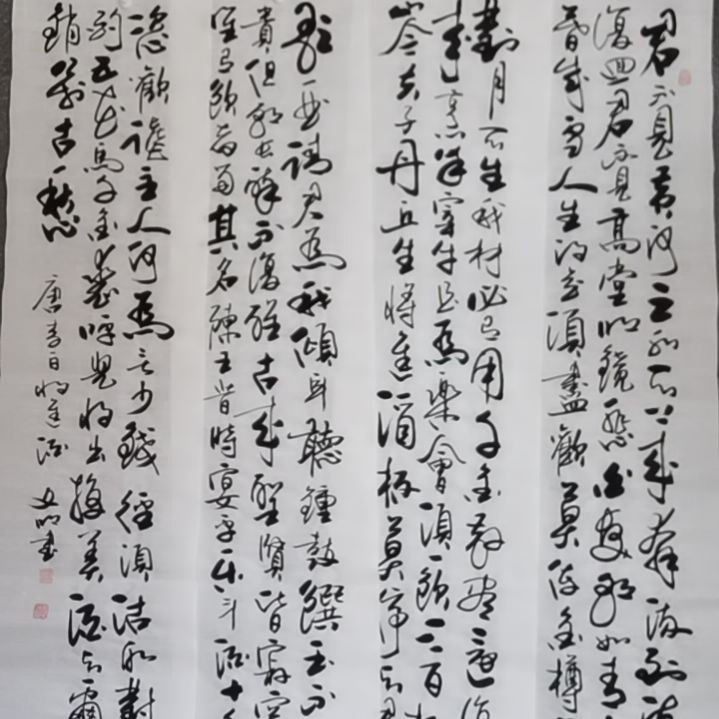 君不見黃河之水天上來奔流到海
復回君不見高堂明鏡悲白髮朝如青
暮成雪人生得意須盡歡莫使金樽
對月天生我材必有用千金散盡還復
來烹羊宰牛且為樂會須一飲三百杯
岑夫子丹丘生將進酒杯莫停與君
歌一曲請君為我傾耳聽鐘鼓饌玉不
貴但願長醉不復醒古來聖賢皆寂寞
惟有飲者留其名陳王昔時宴平樂斗酒十千
恣歡謔主人何為言少錢徑須沽取對
酌五花馬千金裘呼兒將出換美酒與爾
銷萬古愁
唐李白將進酒
文明書